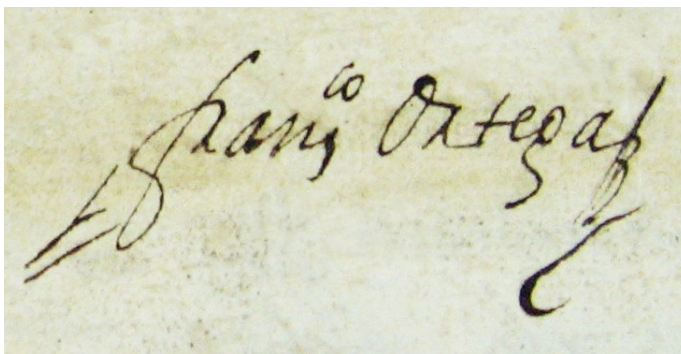 franᶜᵒ Ortega